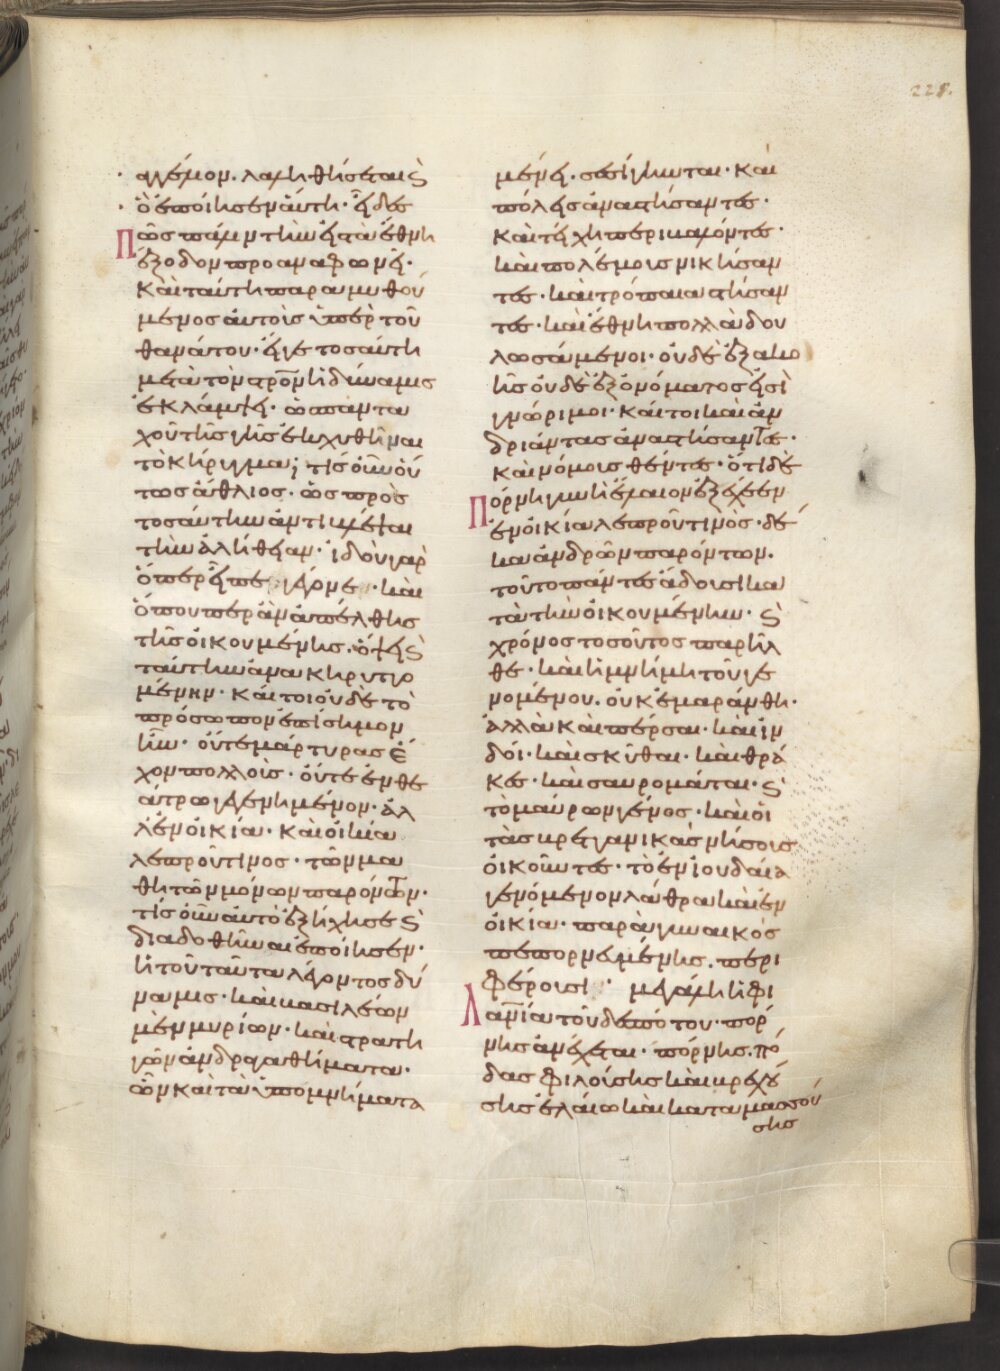 228.
αγγέλιον. λαληθήσεται ϛ
ὃ ἐποίησεν ἁύτη· εἶδες
Πῶς πάλιν τὴν εἰς τὰ ἔθνη
ἔξοδον προαναφωνεῖ·
Καὶ ταύτη παραμυθού
μενος αὐτοὺς ὑπὲρ τοῦ
θανάτου· εἴγε τοσαύτη
μετὰ τὸν στρον ἡ δύναμις
ἐκλάμψει· ὡς πάντα
χοῦ τῆς γῆς ἐκχυθῆναι
τὸ κήρυγμα; τίς οὖν ὁύ
τως ἄθλιος. ὡς πρὸς
τοσαύτην ἀντιβλέψαι
τὴν ἀλήθειαν· ἰδοὺ γὰρ
ὅπερ εἶπε γέγονε· καὶ
ὅπουπερ ἂν ἀπέλθης
τῆς οἰκουμένης. ὄψει ϛ
ταύτην ἀνακηρυττο
μένην· καίτοι οὐδὲ τὸ
πρόσωπον ἐπίσημον
ἦν· οὔτε μάρτυρας ἔ
χον πολλοὺς· οὔτε ἐν θε
άτρω γεγενημένον· ἀλ
λ' ἐν οἰκία· καὶ οἰκία
λεπροῦ τινος· τῶν μα
θητῶν μόνων παρόντων·
τίς οὖν αὐτὸ ἐξήχησε ϛ
διαδοθῆναι ἐποίησεν·
ἡ τοῦ ταῦτα λέγοντος δύ
ναμις· καὶ βασιλέων
μὲν μυρίων· καὶ στρατη
γῶν ἀνδραγαθήματα·
ὧν καὶ τὰ ὑπομνήματα
μένει. σεσίγηνται· Καὶ
πόλεις ἀναστήσαντες·
Καὶ τείχη περιβαλόντες·
καὶ πολέμοις νικήσαν
τες· καὶ τρόπαια στήσαν
τες· καὶ ἔθνη πολλὰ δου
λωσάμενοι· οὐδὲ ἐξ ἀκο
ῆς οὐδὲ ἐξ ὀνόματος εἰσὶ
γνώριμοι· Καίτοι καὶ ἀν
δριάντας ἀναστήσαντες·
Καὶ νόμοις θέντες· ὅτι δὲ
Πόρνη γυνὴ ἔλαιον ἐξέχεεν
ἐν οἰκία λεπροῦ τινὸς· δέ
κα ἀνδρῶν παρόντων.
τοῦτο πάντες ἄδουσι κα
τὰ τὴν οἰκουμένην· ϛ
χρόνος τοσοῦτος παρῆλ
θε· καὶ ἡ μνήμη τοῦ γε
νομένου. οὐκ ἐμαράνθη·
ἀλλὰ καὶ πέρσαι· καὶ ἰν
δοί· καὶ σκύθαι· καὶ θρᾶ
κες· καὶ σαυρομάται· ϛ
τὸ μαύρων γένος· καὶ οἱ
τὰς βρεττανικὰς νήσους
οἰκοῦντες· τὸ ἐν ἰουδαία
γενόμενον λάθρα καὶ ἐν
οἰκία· παρὰ γυναικὸς
πεπορνευμένης. περι
φέρουσι· μεγάλη ἡ φι
Λανία τοῦ δεσπότου· πόρ
νης ἀνέχεται· πόρνης. πό
δας φιλούσης καὶ βρεχού
σης ἐλαίω καὶ καταμασσού
σης